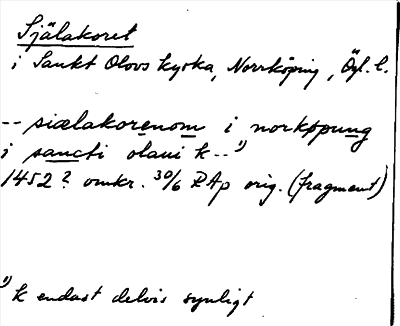 Själakoret
i Sankt Olovs kyrka, Norrköping, Ögl. l.
-- siælakorenom i norkøpung
i sancti olaui k--¹⁾
1452? omkr. 30/6 RAp orig. (fragment)
¹⁾ k endast delvis synligt